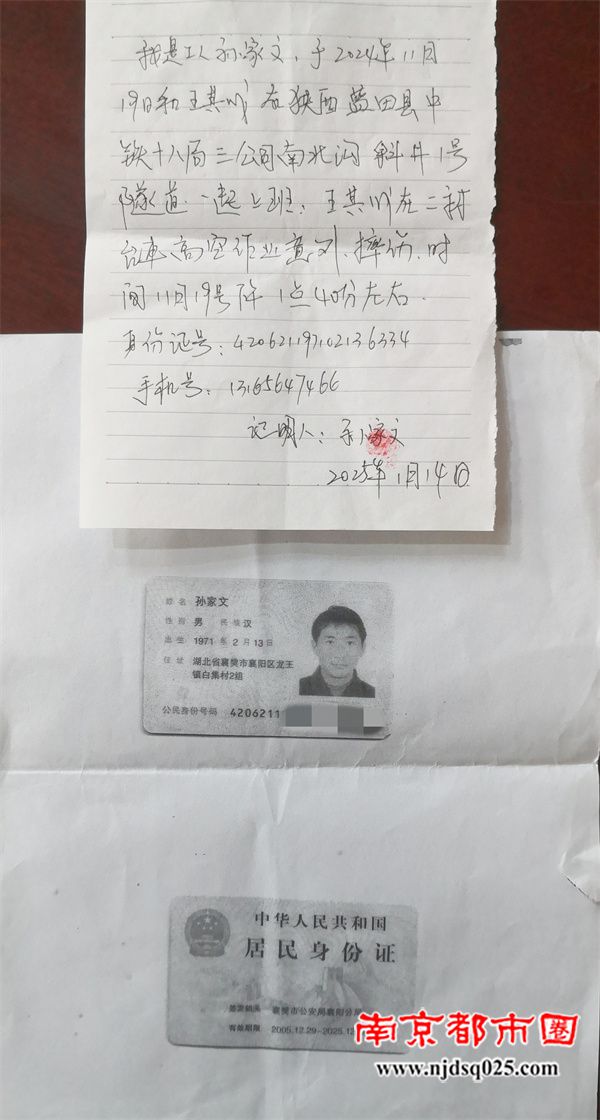 我是工人孙家文,于2024年11月
19日和王其川在狭西蓝田县中
铁十八局三公司南北沟斜井1号
隧道一起上班,王其川在二衬
台車高空作业意外摔伤.时
间11月19号 1点40份左右.
身份证号:420621197102136334
手机号:13165647466
证明人:孙家文
2025年1月14日
姓名 孙家文
性别 男 民族 汉
出生 1971 年 2 月 13 日
住址 湖北省襄樊市襄阳区龙王
镇白集村2组
公民身份号码 4206211
中华人民共和国
居民身份证
签发机关 襄樊市公安局襄阳分局
有效期限 2005.12.29-2025.12
南京都市圈
www.njdsq025.com